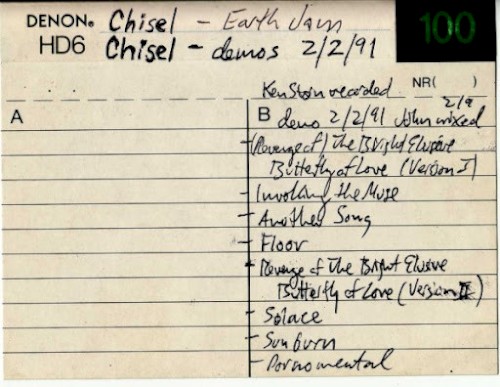 DENON® Chisel - Earth Jam
HD6 Chisel - demos 2/2/91
100
Ken Stoin recorded NR( )
2/9
A
B demo 2/2/91 John mixed
(Revenge of) The Bright Elusive
Butterfly of Love (Version I)
- Invoking the Muse
- Another Song
- Floor
- Revenge of The Bright Elusive
Butterfly of Love (Version II)
- Solace
- Sunburn
- Pornomental